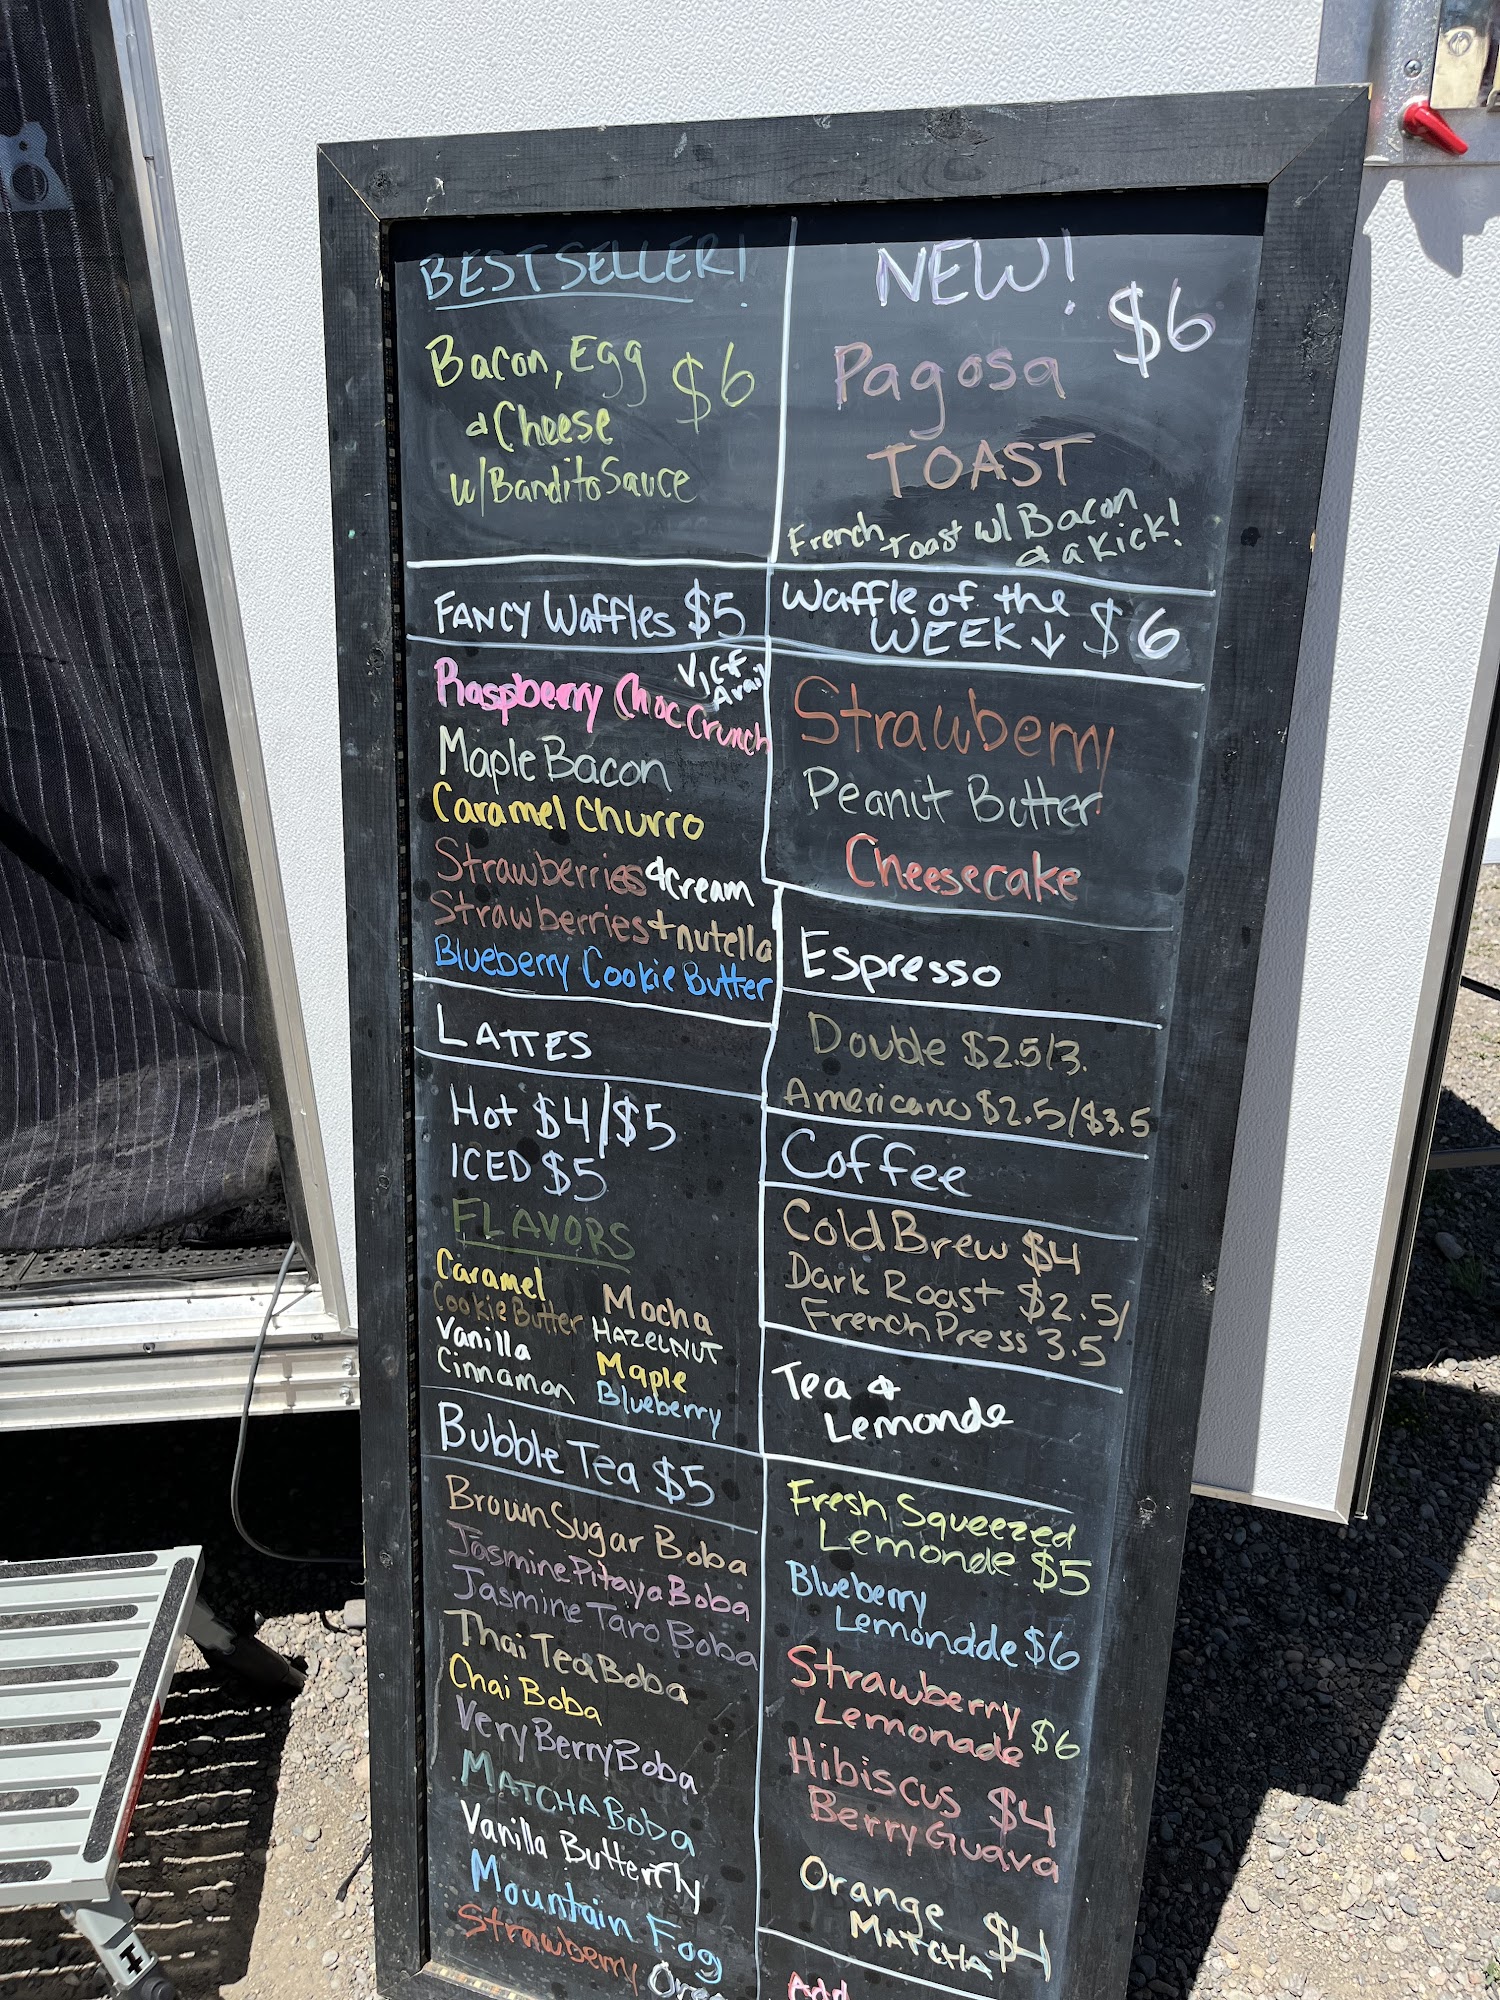 BEST SELLER!
Bacon, Egg $6
& Cheese
w/Bandito Sauce
NEW!
$6
Pagosa
TOAST
French toast w/ Bacon
& a Kick!
FANCY Waffles $5
V, GF
Avail
Raspberry Choc Crunch
Maple Bacon
Caramel Churro
Strawberries & cream
Strawberries + nutella
Blueberry Cookie Butter
Waffle of the
WEEK ↓ $6
Strawberry
Peanut Butter
Cheesecake
LATTES
Hot $4/$5
ICED $5
FLAVORS
Caramel
Cookie Butter
Vanilla
Cinnamon
Mocha
HAZELNUT
Maple
Blueberry
Espresso
Double $2.5/3.
Americano $2.5/$3.5
Coffee
Cold Brew $4
Dark Roast $2.5/
French Press 3.5
Bubble Tea $5
Brown Sugar Boba
Jasmine Pitaya Boba
Jasmine Taro Boba
Thai Tea Boba
Chai Boba
Very Berry Boba
MATCHA Boba
Vanilla Butterfly
Mountain Fog
Strawberry Oreo
Tea &
Lemonde
Fresh Squeezed
Lemonde $5
Blueberry
Lemondde $6
Strawberry
Lemonade $6
Hibiscus $4
Berry Guava
Orange
MATCHA $4
Add